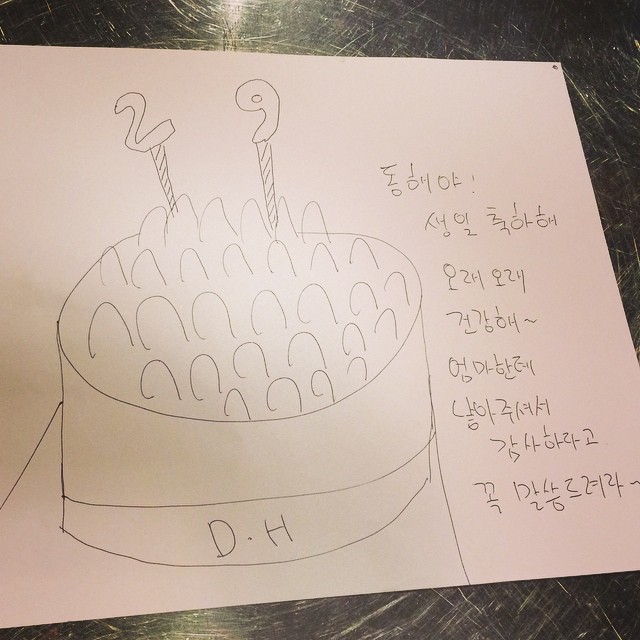 29
동해야!
생일 축하해
오래오래
건강해~
엄마한테
낳아주셔서
감사하라고
꼭 말씀드려라~
D.H